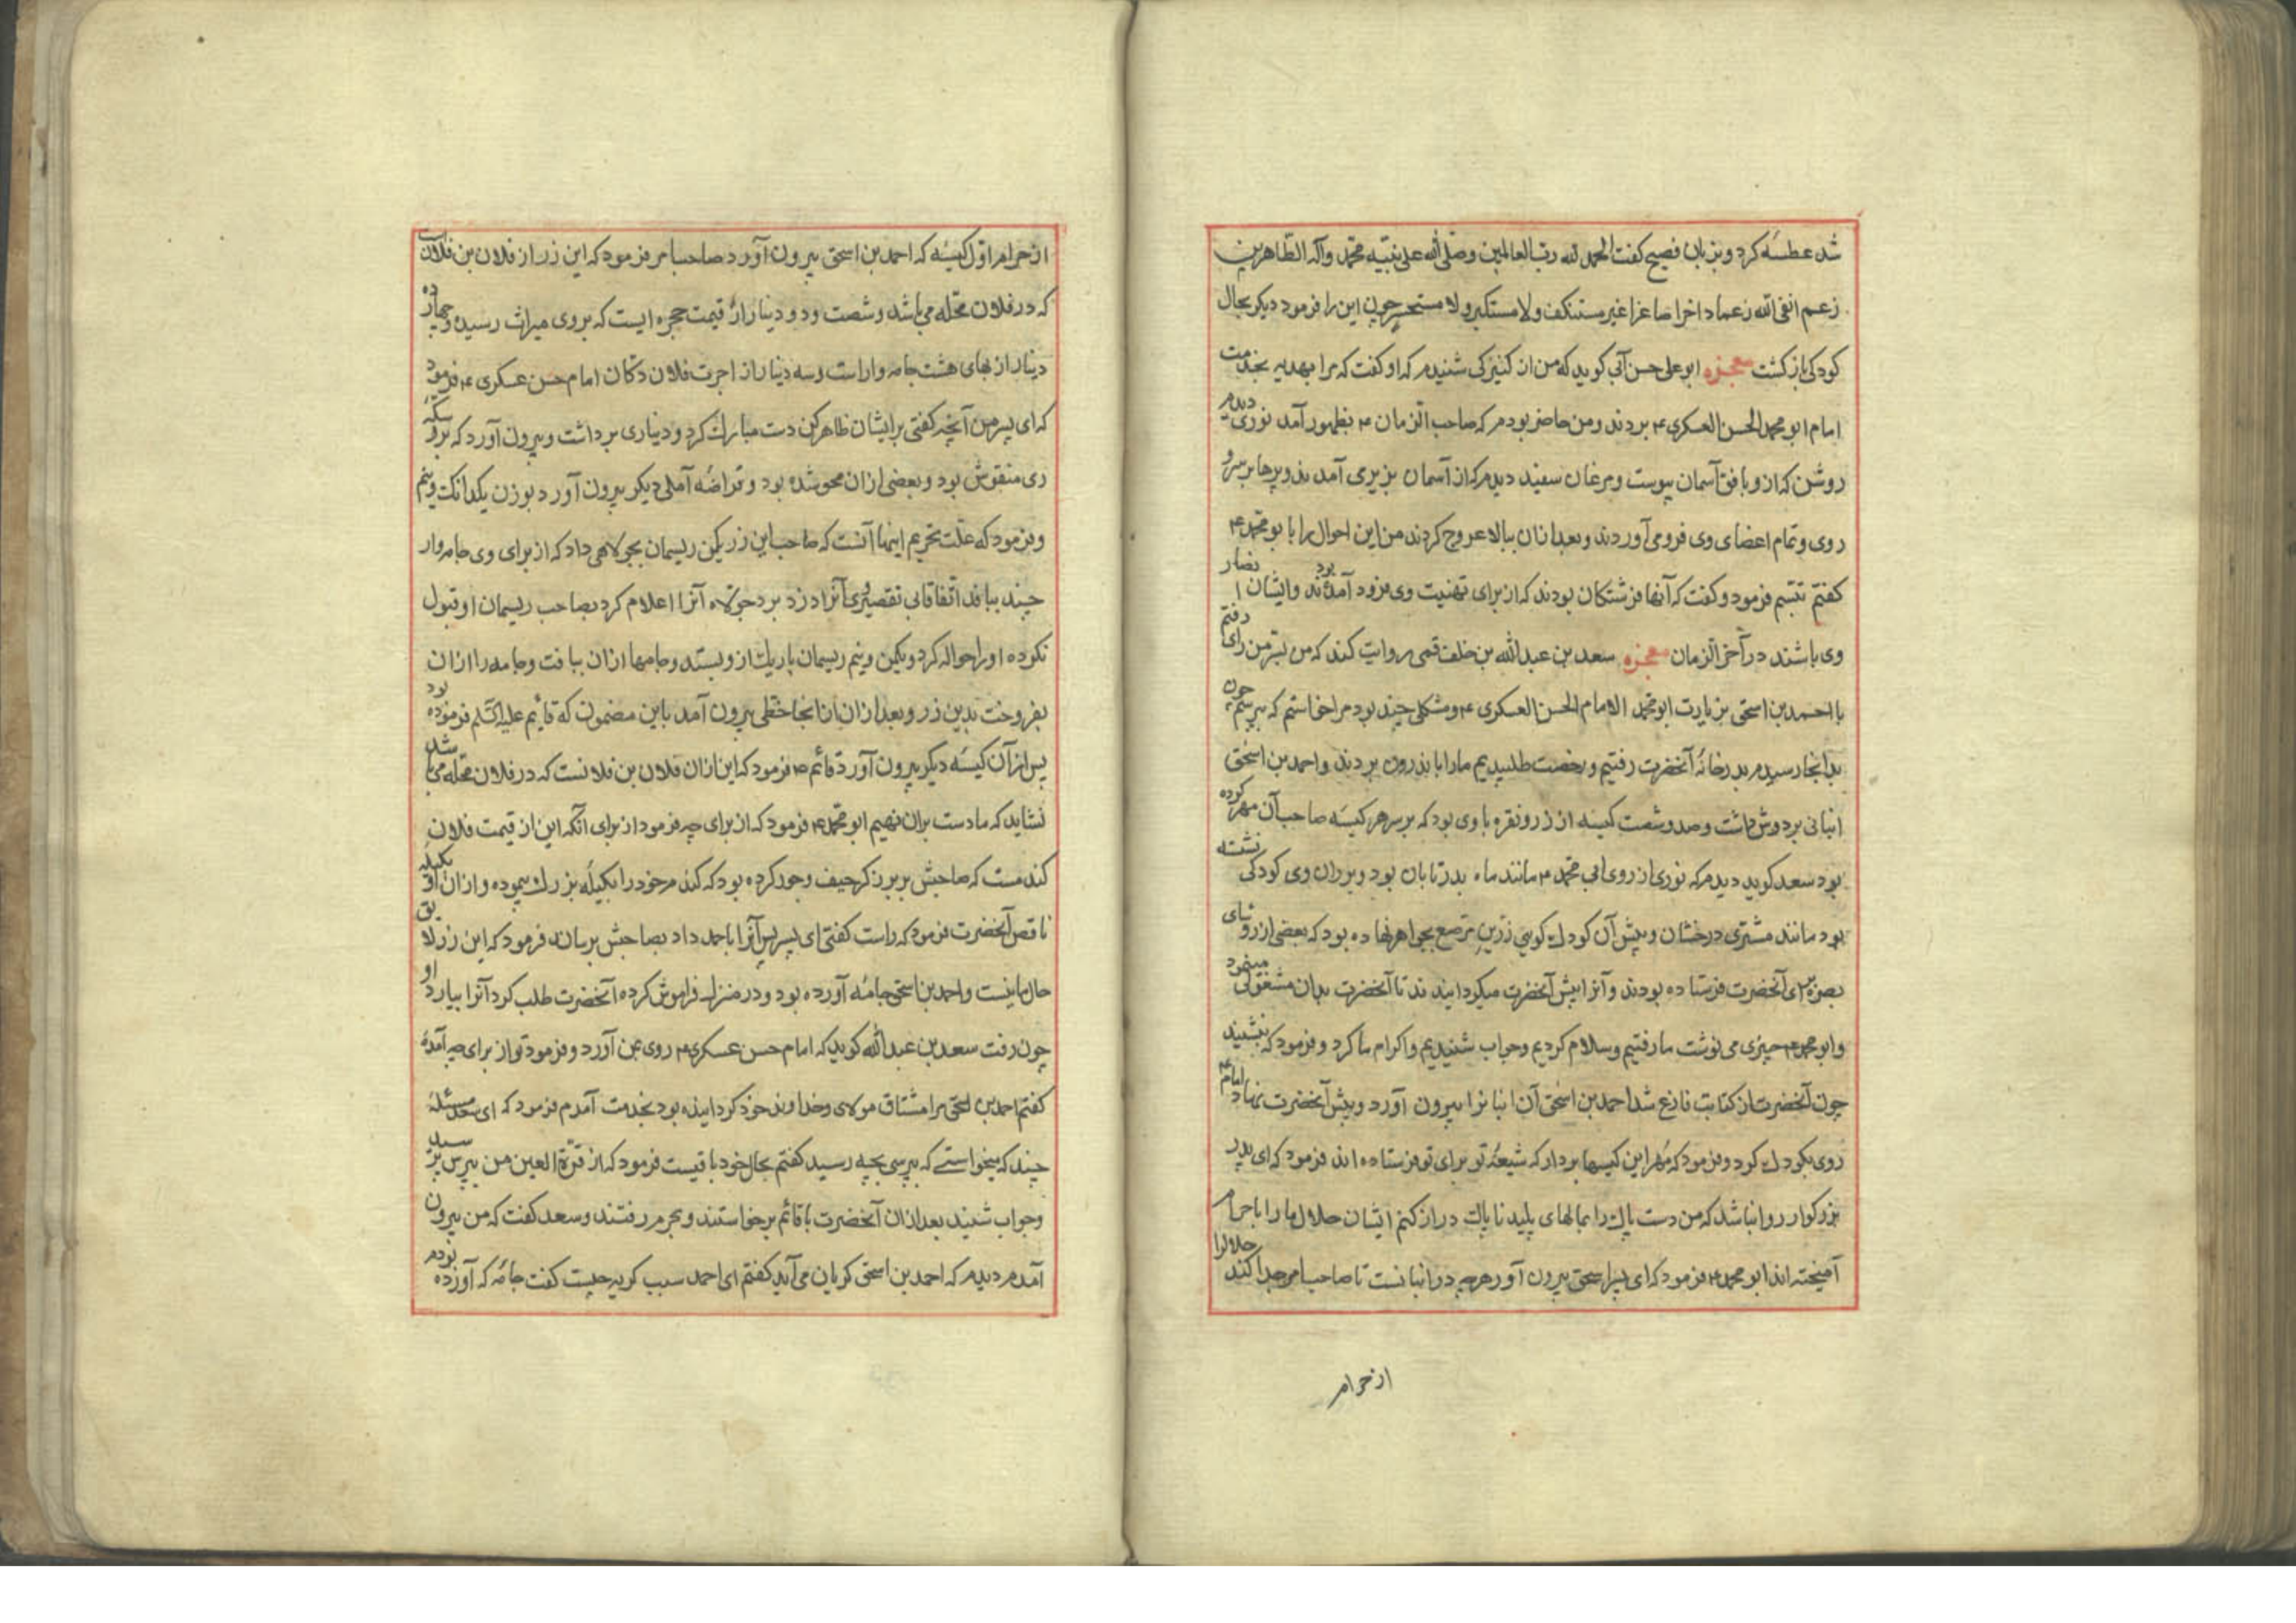 شد عطسه کرد و بزبان فصیح کفت الحمد لله رب العالمین وصلی الله علی نبیه محمد وآله الطاهرین
زعم انفی الله زعما داخرا صاغرا غیر مستنکف ولا مستکبر ولا مستحسر چون این را فرمود دیکر بحال
کودکی باز کشت معجزه ابو علی حسن آبی کوید که من از کنیزکی شنیدم که او کفت که مرا بهدیه بخدمت
امام ابو محمد الحسن العسکری ع بردند ومن حاضر بودم که صاحب الزمان ع بظهور آمد نوری دیدم
روشن که ازو بافق آسمان پیوست ومرغان سفید دیدم که از آسمان بزیر می آمدند وپرها بر سر و
روی وتمام اعضای وی فرو می آوردند وبعد ازان ببالا عروج کردند من این احوال را با بو محمد ع
کفتم تبسم فرمود وکفت که آنها فرشتکان بودند که از برای تهنیت وی فرود آمده بودند وایشان انصار
وی باشند در آخر الزمان معجزه سعد بن عبد الله بن خلف قمی روایت کند که من بسر من رای رفتم
با احمد بن اسحق بزیارت ابو محمد الامام الحسن العسکری ع ومشکلی چند بود مرا خواستم که بپرسم چون
بدانجا رسیدم بدر خانهٔ آنحضرت رفتیم و رخصت طلبیدیم مارا باندرون بردند واحمد بن اسحق
انبانی بر دوش داشت وصد وشصت کیسه از زر ونقره با وی بود که بر سر هر کیسه صاحب آن مهر کرده
بود سعد کوید دیدم که نوری از روی ابی محمد ع مانند ماه بدر تابان بود و بر ران وی کودکی نشسته
بود مانند مشتری درخشان وپیش آن کودک کویی زرین مرصع بجواهر نهاده بود که بعضی از روسای
بصره برای آنحضرت فرستاده بودند وآنرا پیش آنحضرت میکردانیدند تا آنحضرت بدان مشغولی مینمود
وابو محمد ع چیزی می نوشت ما رفتیم وسلام کردیم وجواب شنیدیم واکرام ما کرد وفرمود که بنشینید
چون آنحضرت از کتابت فارغ شد احمد بن اسحق آن انبانرا بیرون آورد وپیش آنحضرت نهاد امام ع
روی بکودک کرد وفرمود که مهر این کیسها بردار که شیعهٔ تو برای تو فرستاده اند فرمود که ای پدر
بزرکوار روا نباشد که من دست پاک را بمالهای پلید ناپاک دراز کنم ایشان حلال ما را با حرام
آمیخته اند ابو محمد ع فرمود که ای پسر اسحق بیرون آور هرچه در انبانست تا صاحب امر جدا کند حلالرا
از حرام
از حرام اول کیسه که احمد بن اسحق بیرون آورد صاحب امر فرمود که این زر از فلان بن فلان است
که در فلان محله می باشد وشصت ودو دینار از قیمت حجره ایست که بروی میراث رسیده وچهارده
دینار از بهای هشت جامه وار است وسه دینار از اجرت فلان دکان امام حسن عسکری ع فرمود
که ای پسر من آنچه کفتی برایشان ظاهر کن دست مبارک کرد ودیناری برداشت وبیرون آورد که برو سکهٔ
ری منقوش بود وبعضی ازان محو شده بود وقراضه آملی دیکر بیرون آورد بوزن یکدانک ونیم
وفرمود که علت تحریم اینها آنست که صاحب این زر یکمن ریسمان بجولاهی داد که از برای وی جامه وار
چند ببافد اتفاقا بی تقصیری آنرا دزد برد جولاه آنرا اعلام کرد بصاحب ریسمان او قبول
نکرده او را حواله کرد ویکمن ونیم ریسمان باریک ازو بستد وجامها ازان ببافت وجامه را ازان
بفروخت بدین زر وبعد ازان از انجا خطی بیرون آمد باین مضمون که قائم علیه السلم فرموده بود
پس از آن کیسه دیکر بیرون آورد قائم ع فرمود که این ازان فلان بن فلانست که در فلان محله می باشد
نشاید که ما دست بران نهیم ابو محمد ع فرمود که از برای چه فرمود از برای آنکه این از قیمت فلان
کندمست که صاحبش بر برزکر حیف وجور کرده بود که کندم خود را بکیلهٔ بزرک پیموده وازان او بکیلهٔ
ناقص آنحضرت فرمود که راست کفتی ای پسر پس آنرا با حمد داد بصاحبش برسان وفرمود که این زر لایق
حال ما نیست واحمد بن اسحق جامهٔ آورده بود ودر منزل فراموش کرده آنحضرت طلب کرد آنرا بیارد او
چون رفت سعد بن عبد الله کوید که امام حسن عسکری ع روی بمن آورد وفرمود تو از برای چه آمدهٔ
کفتم احمد بن اسحق مرا مشتاق مولای وخداوند خود کردانیده بود بخدمت آمدم فرمود که ای سعد مسئلهٔ
چند که میخواستی که بپرسی بچه رسید کفتم بحال خود باقیست فرمود که از قرة العین من بپرس پرسید
وجواب شنید بعد ازان آنحضرت با قائم برخواستند وبحرم رفتند وسعد کفت که من بیرون
آمدم دیدم که احمد بن اسحق کریان می آید کفتم ای احمد سبب کریه چیست کفت جامهٔ که آورده بودم